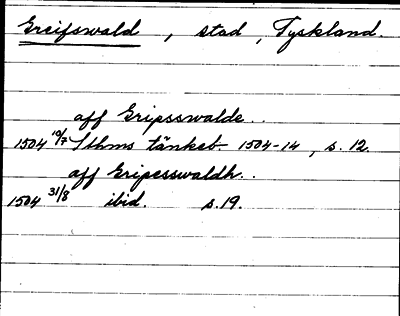 Greifswald, stad, Tyskland.
aff Gripsswalde..
1504 10/7 Sthms tänkeb. 1504-14, s. 12.
aff Gripesswaldh..
1504 31/8 ibid. s. 19.